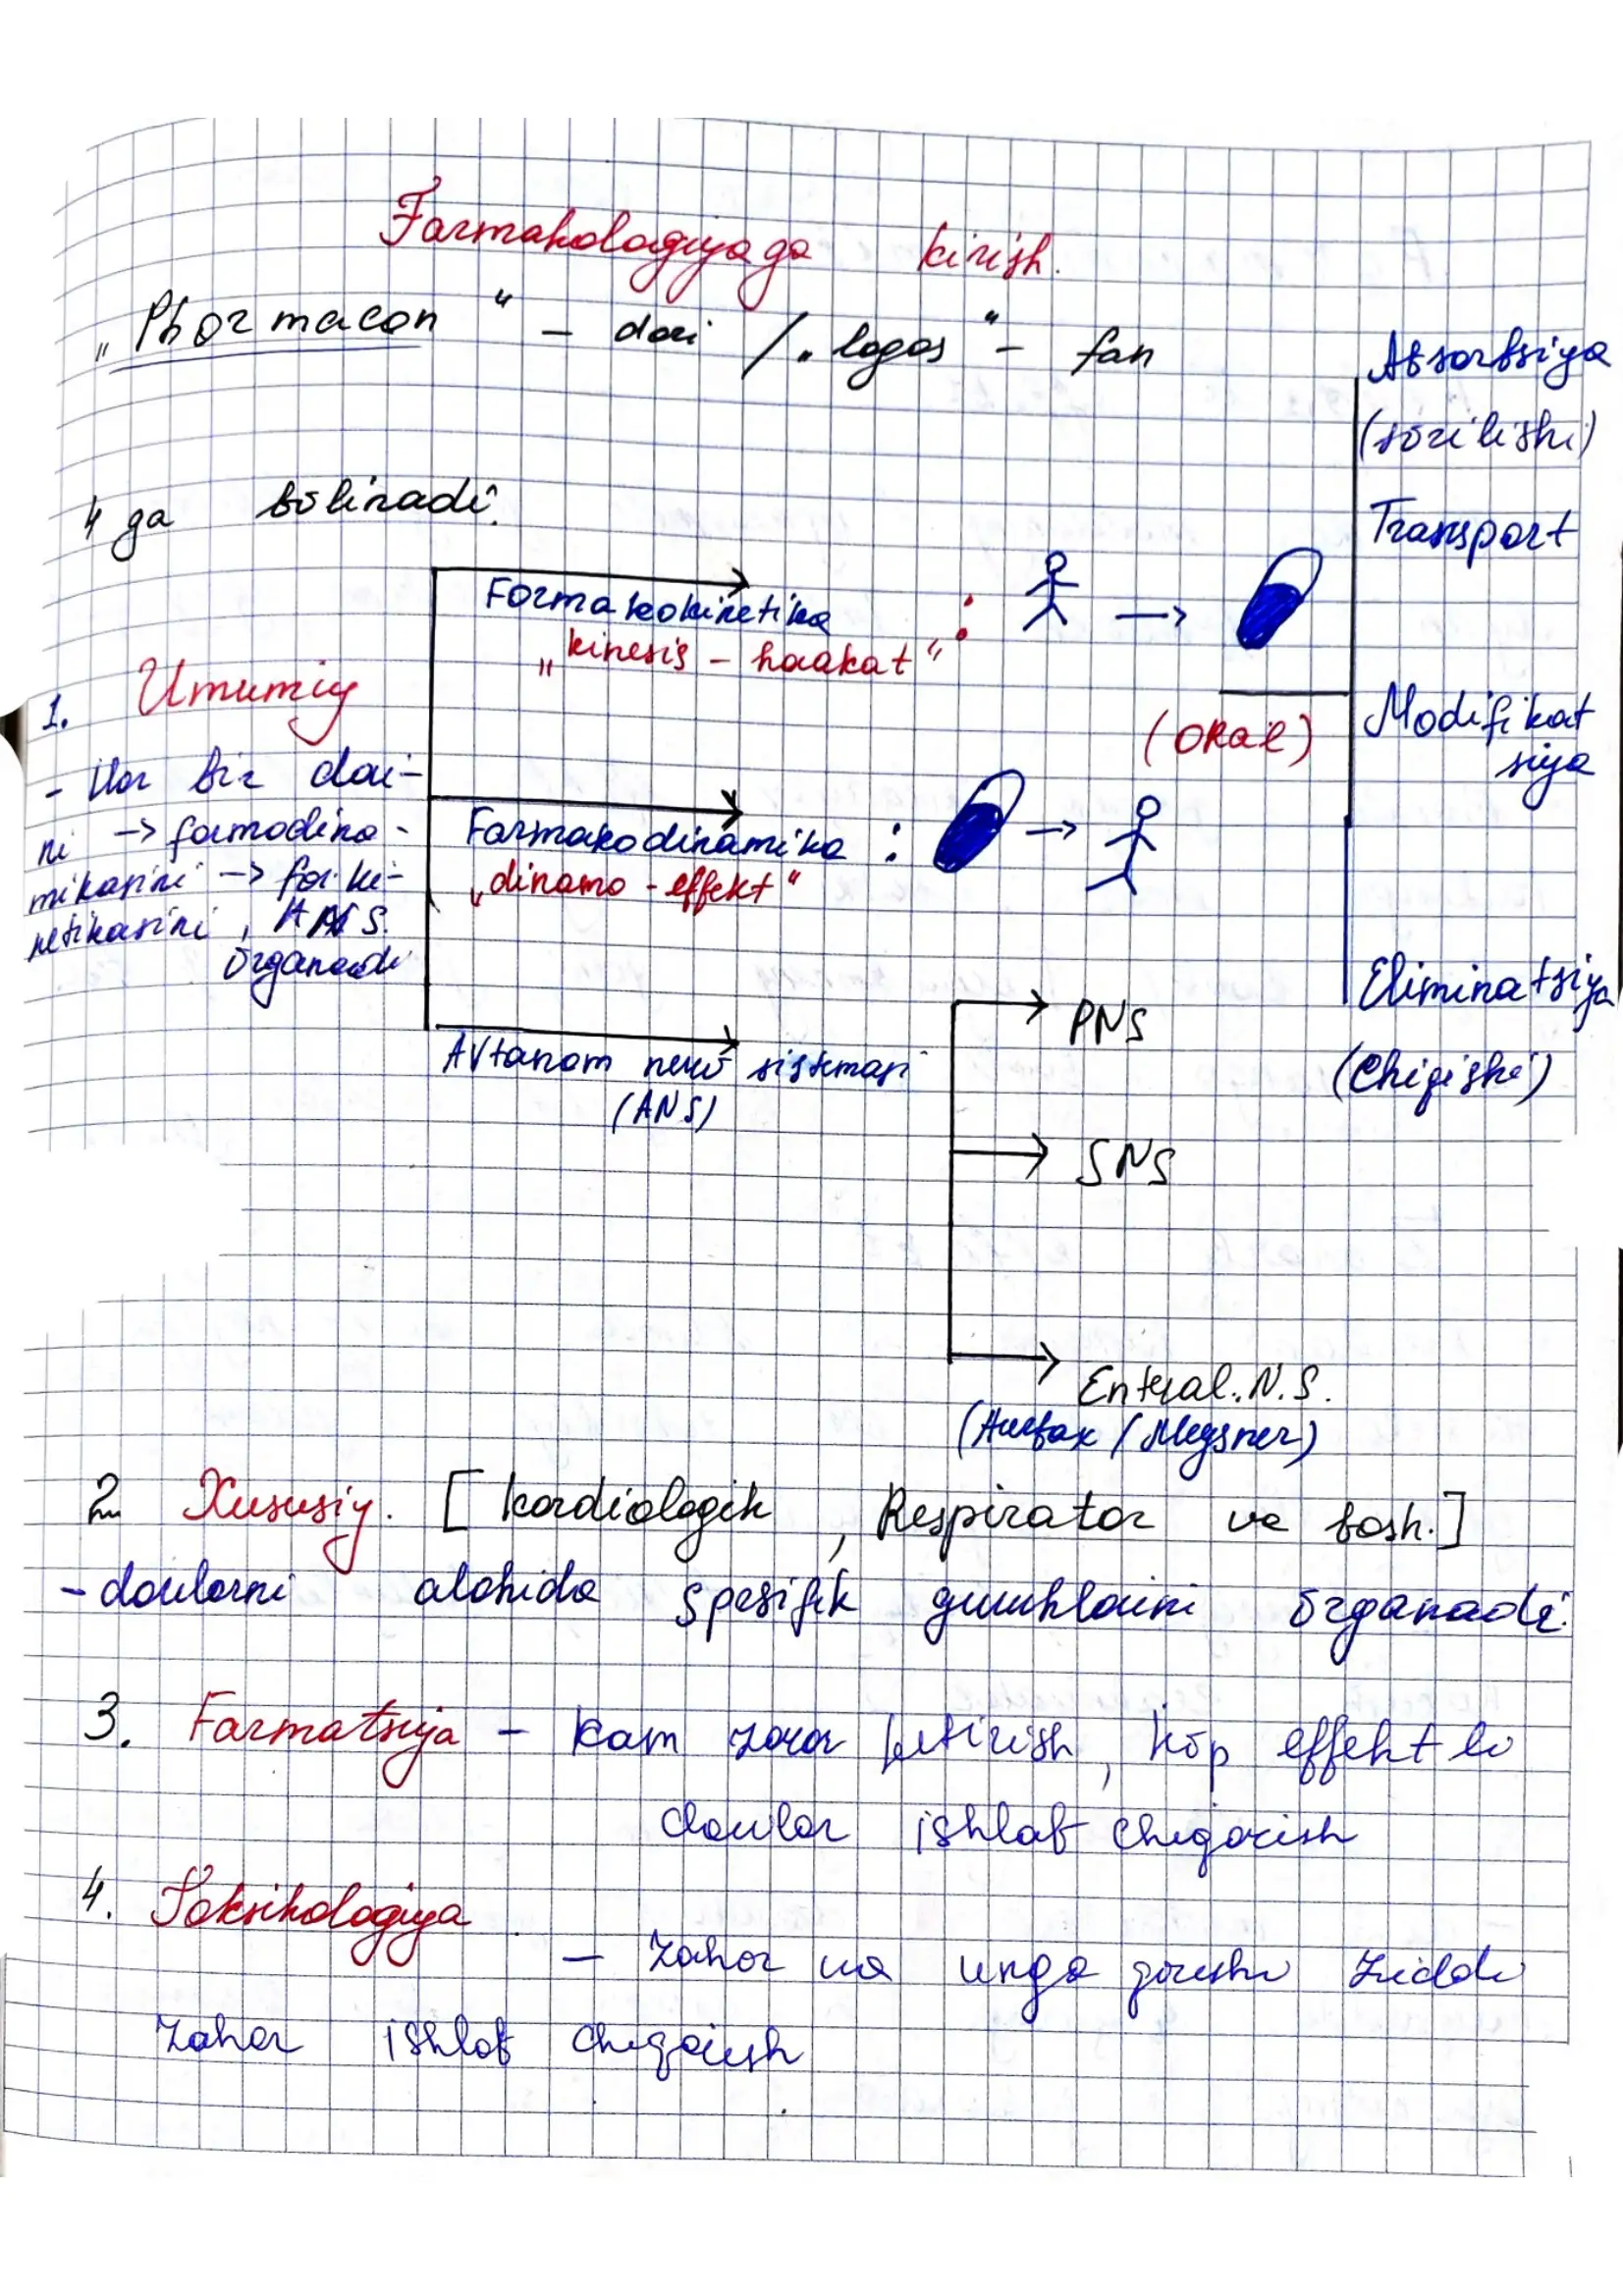 Farmakologiyaga kirish.
„Pharmacon“ – dori / „logos“ – fan
4 ga bo̅linadi.
1. Umumiy
- Har bir dori-
ni -> farmodina-
mikasini -> far.ki-
netikasini, ANS.
o̅rganadi
Farmakokinetika
„kinesis – harakat“ :
(ORAL)
Farmakodinamika :
„dinamo - effekt“
Avtanom nerv sistemasi
(ANS)
Absorbsiya
(so̅rilishi)
Transport
Modifikat
siya
Eliminatsiya
(Chiqishi)
PNS
SNS
Enteral. N.S.
(Auerbax / Meysner)
2. Xususiy. [kardiologik, Respirator va bosh.]
- dorilarni alohida spesifik guruhlarini o̅rganadi.
3. Farmatsiya – kam zarar keltirish, ko̅p effektli
dorilar ishlab chiqarish
4. Toksikologiya
– zahar va unga qarshi ziddi
zahar ishlab chiqarish